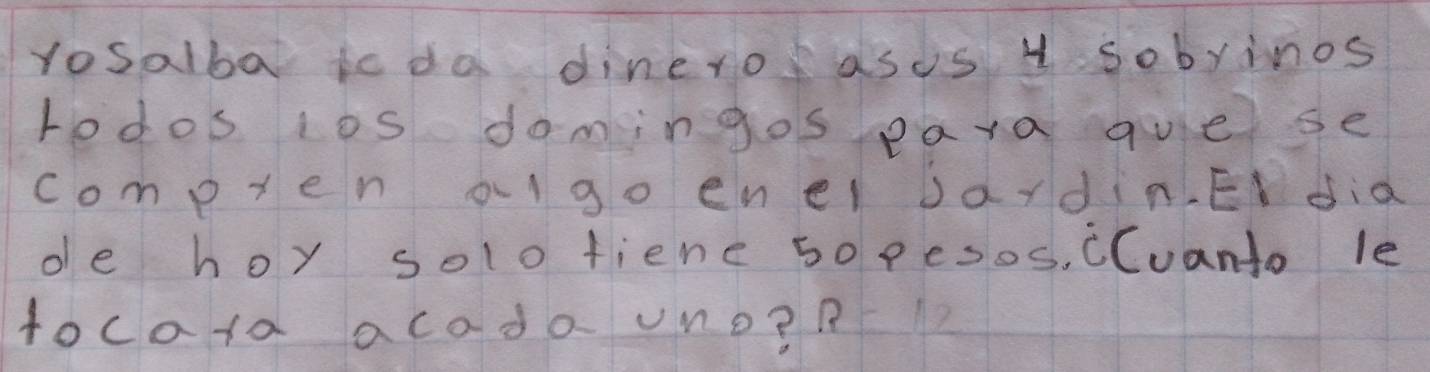 rosalba le da dinero asus 4 sobrinos
todos los domingos para que se
compren algo en el jardin. El dia
de hoy solo tiene 50 pesos. ¿Cuanto le
tocara acada uno? R- 12